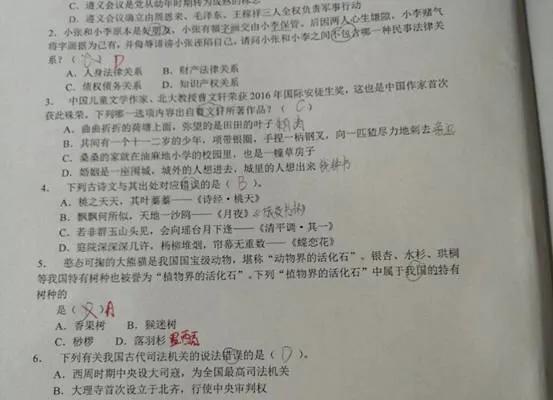 C. 遵义会议是党从幼年时期转为成熟的标志
D. 遵义会议确立由周恩来、毛泽东、王稼祥三人全权负责军事行动
2. 小张和小李原本是好朋友，小张有幅字画交由小李保管。后因两人心生嫌隙，小李赌气
将字画据为己有，并侮辱诽谤小张诬陷自己，请问小张和小李之间不包含哪一种民事法律关
系？（ ） D
A、人身法律关系 B、财产法律关系
C、债权债务关系 D、知识产权关系
3. 中国儿童文学作家、北大教授曹文轩荣获 2016 年国际安徒生奖，这也是中国作家首次
获此殊荣。下列哪一选项内容出自曹文轩所著作品？（ C ）
A、曲曲折折的荷塘上面，弥望的是田田的叶子
B、其间有一个十一二岁的少年，项带银圈，手捏一柄钢叉，向一匹猹尽力地刺去
C、桑桑的家就在油麻地小学的校园里，也是一幢草房子
D、婚姻是一座围城，城外的人想进去，城里的人想出来 钱钟书
4. 下列古诗文与其出处对应错误的是（ B ）。
A、桃之夭夭，其叶蓁蓁——《诗经·桃夭》
B、飘飘何所似，天地一沙鸥——《月夜》
C、若非群玉山头见，会向瑶台月下逢——《清平调·其一》
D、庭院深深深几许，杨柳堆烟，帘幕无重数——《蝶恋花》
5. 憨态可掬的大熊猫是我国国宝级动物，堪称“动物界的活化石”。银杏、水杉、珙桐
等我国特有树种也被誉为“植物界的活化石”。下列“植物界的活化石”中属于我国的特有
树种的
是（ ）A
A、香果树 B、猴迷树
C、桫椤 D、落羽杉 墨西哥
6. 下列有关我国古代司法机关的说法错误的是（ D ）。
A、西周时期中央设大司寇，为全国最高司法机关
B、大理寺首次设立于北齐，行使中央审判权